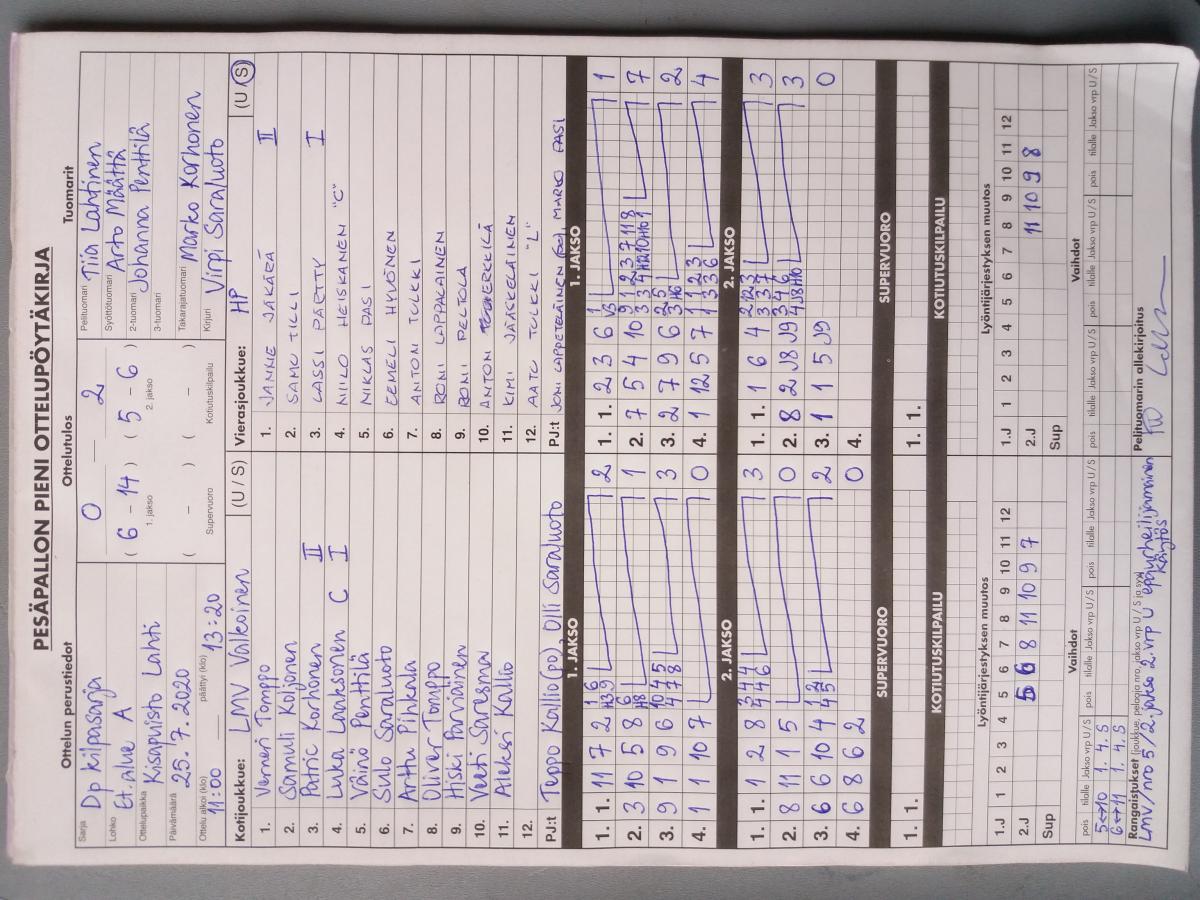 PESÄPALLON PIENI OTTELUPÖYTÄKIRJA
Ottelun perustiedot
Sarja Dp kilpasarja
Lohko Et. alue A
Ottelupaikka Kisapuisto Lahti
Päivämäärä 25.7.2020
Ottelu alkoi (klo) 11:00 päättyi (klo) 13:20
Ottelutulos
0 — 2
( 6 - 14 ) ( 5 - 6 )
1. jakso 2. jakso
( - ) ( - )
Supervuoro Kotiutuskilpailu
Tuomarit
Pelituomari Tiia Lahtinen
Syöttötuomari Arto Määttä
2-tuomari Johanna Penttilä
3-tuomari
Takarajatuomari Marko Korhonen
Kirjuri Virpi Saraluoto
Kotijoukkue: LMV Valkoinen (U / S)
1. Verneri Tomppo
2. Samuli Koljonen
3. Patric Korhonen II
4. Luka Laaksonen C I
5. Väinö Penttilä
6. Sulo Saraluoto
7. Arttu Pihkala
8. Oliver Tomppo
9. Hiski Parviainen
10. Veeti Saresma
11. Aleksi Kallio
12.
PJ:t Teppo Kallio (po), Olli Saraluoto
Vierasjoukkue: HP (U / S)
1. JANNE JÄKÄRÄ II
2. SAMU TILLI
3. LASSI PÄTTY I
4. NIILO HEISKANEN "C"
5. NIKLAS PASI
6. EEMELI HYVÖNEN
7. ANTONI TULKKI
8. RONI LAPPALAINEN
9. RONI PELTOLA
10. ANTON VERKKILÄ
11. KIMI JÄÄSKELÄINEN
12. AATU TULKKI "L"
PJ:t JONI LAPPETELÄINEN MARKO PASI
1. JAKSO
1. 1. 11 7 2 2
2. 3 10 5 8 1
3. 9 1 9 6 3
4. 1 1 10 7 0
2. JAKSO
1. 1. 1 2 8 3
2. 8 11 1 5 0
3. 6 6 10 4 2
4. 6 8 6 2 0
SUPERVUORO
1. 1.
KOTIUTUSKILPAILU
Lyöntijärjestyksen muutos
1.J 1 2 3 4 5 6 7 8 9 10 11 12
2.J 5 6 8 11 10 9 7
Sup
Vaihdot
pois tilalle Jakso vrp U / S pois tilalle Jakso vrp U / S pois tilalle Jakso vrp U / S
5↔10 1. 4. S
6↔11 1. 4. S
Rangaistukset (joukkue, pelaaja nro, jakso vrp U / S ja syy)
LMV/nro 5/2. jakso 2. vrp U epäurheilijamainen käytös
1. JAKSO
1. 1. 2 3 6 1
2. 7 5 4 10 7
3. 2 7 9 6 2
4. 1 12 5 7 4
2. JAKSO
1. 1. 1 6 4 3
2. 8 2 J8 J9 3
3. 1 1 5 J9 0
4.
SUPERVUORO
1. 1.
KOTIUTUSKILPAILU
Lyöntijärjestyksen muutos
1.J 1 2 3 4 5 6 7 8 9 10 11 12
2.J 11 10 9 8
Sup
Vaihdot
pois tilalle Jakso vrp U / S pois tilalle Jakso vrp U / S pois tilalle Jakso vrp U / S
Pelituomarin allekirjoitus